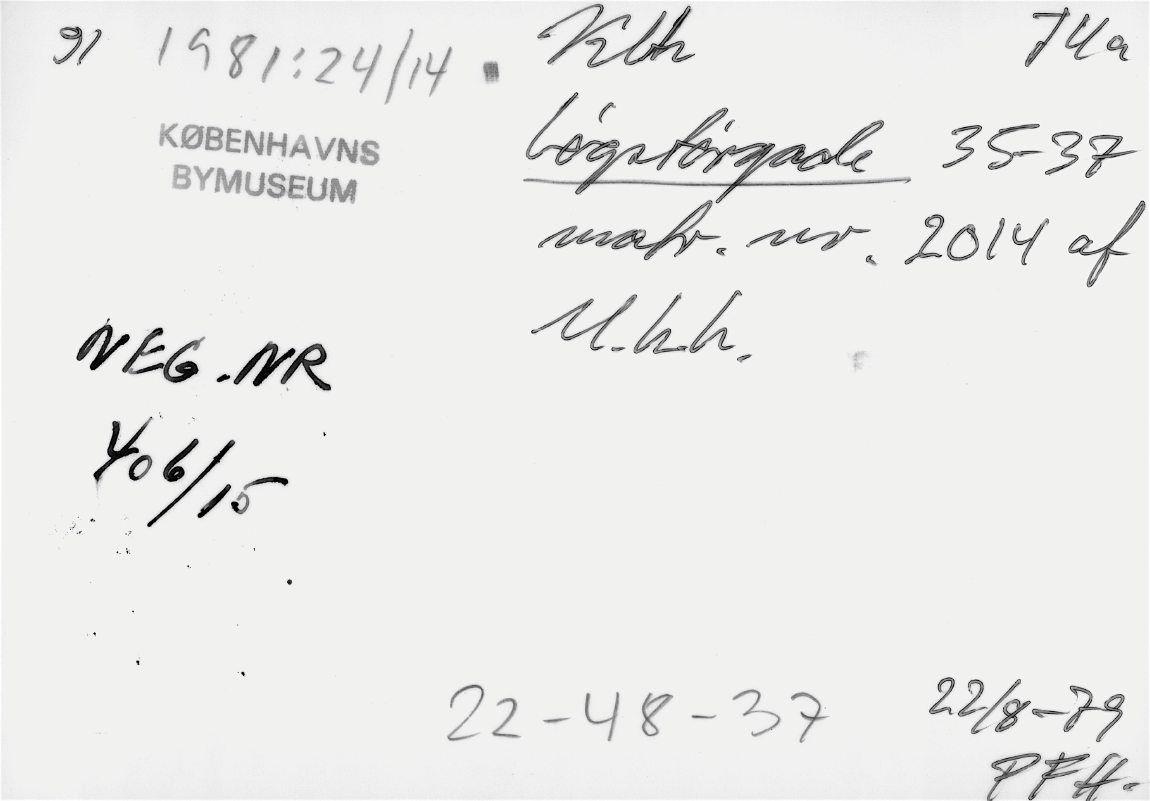 91 1981:24/14
KØBENHAVNS
BYMUSEUM
NEG.NR
406/15
74a
Løgstørgade 35-37
matr. nr. 2014 af
U.k.k.
22-48-37
22/8-79
PFH.